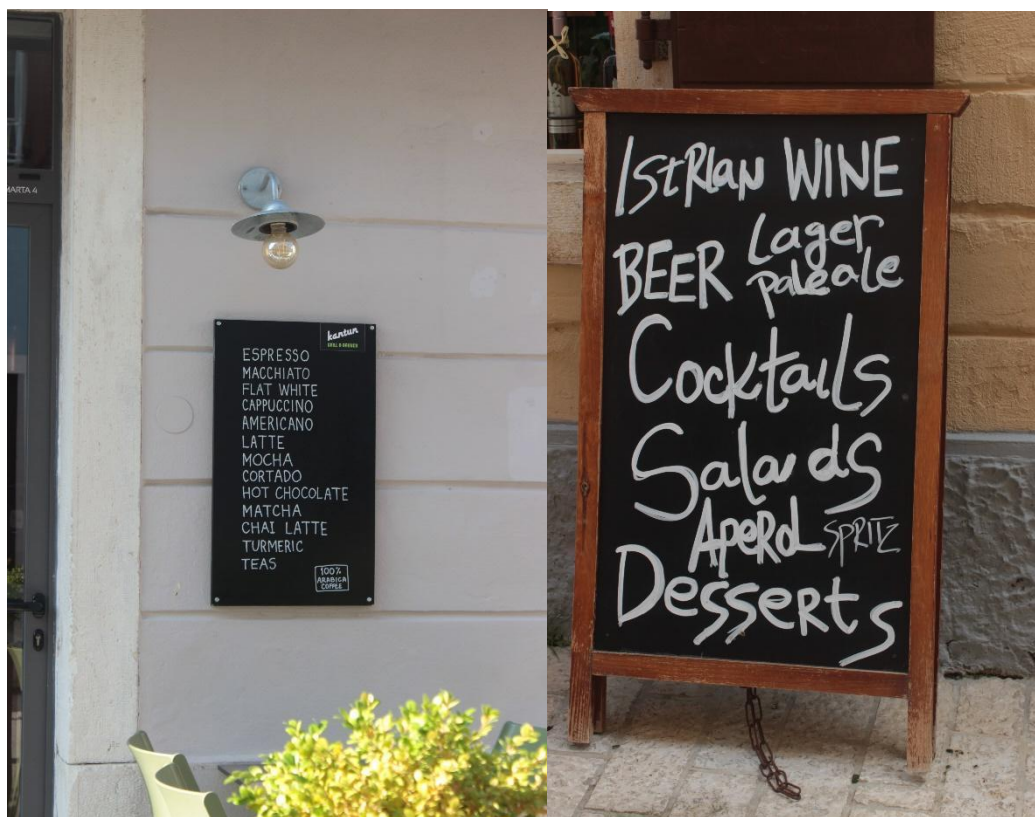 MARTA 4
kantun
GRILL & GARDEN
ESPRESSO
MACCHIATO
FLAT WHITE
CAPPUCCINO
AMERICANO
LATTE
MOCHA
CORTADO
HOT CHOCOLATE
MATCHA
CHAI LATTE
TURMERIC
TEAS
100%
ARABICA
COFFEE
IstRIan WINE
BEER Lager
pale ale
Cocktails
Salads
APeRoL SPRITZ
Desserts